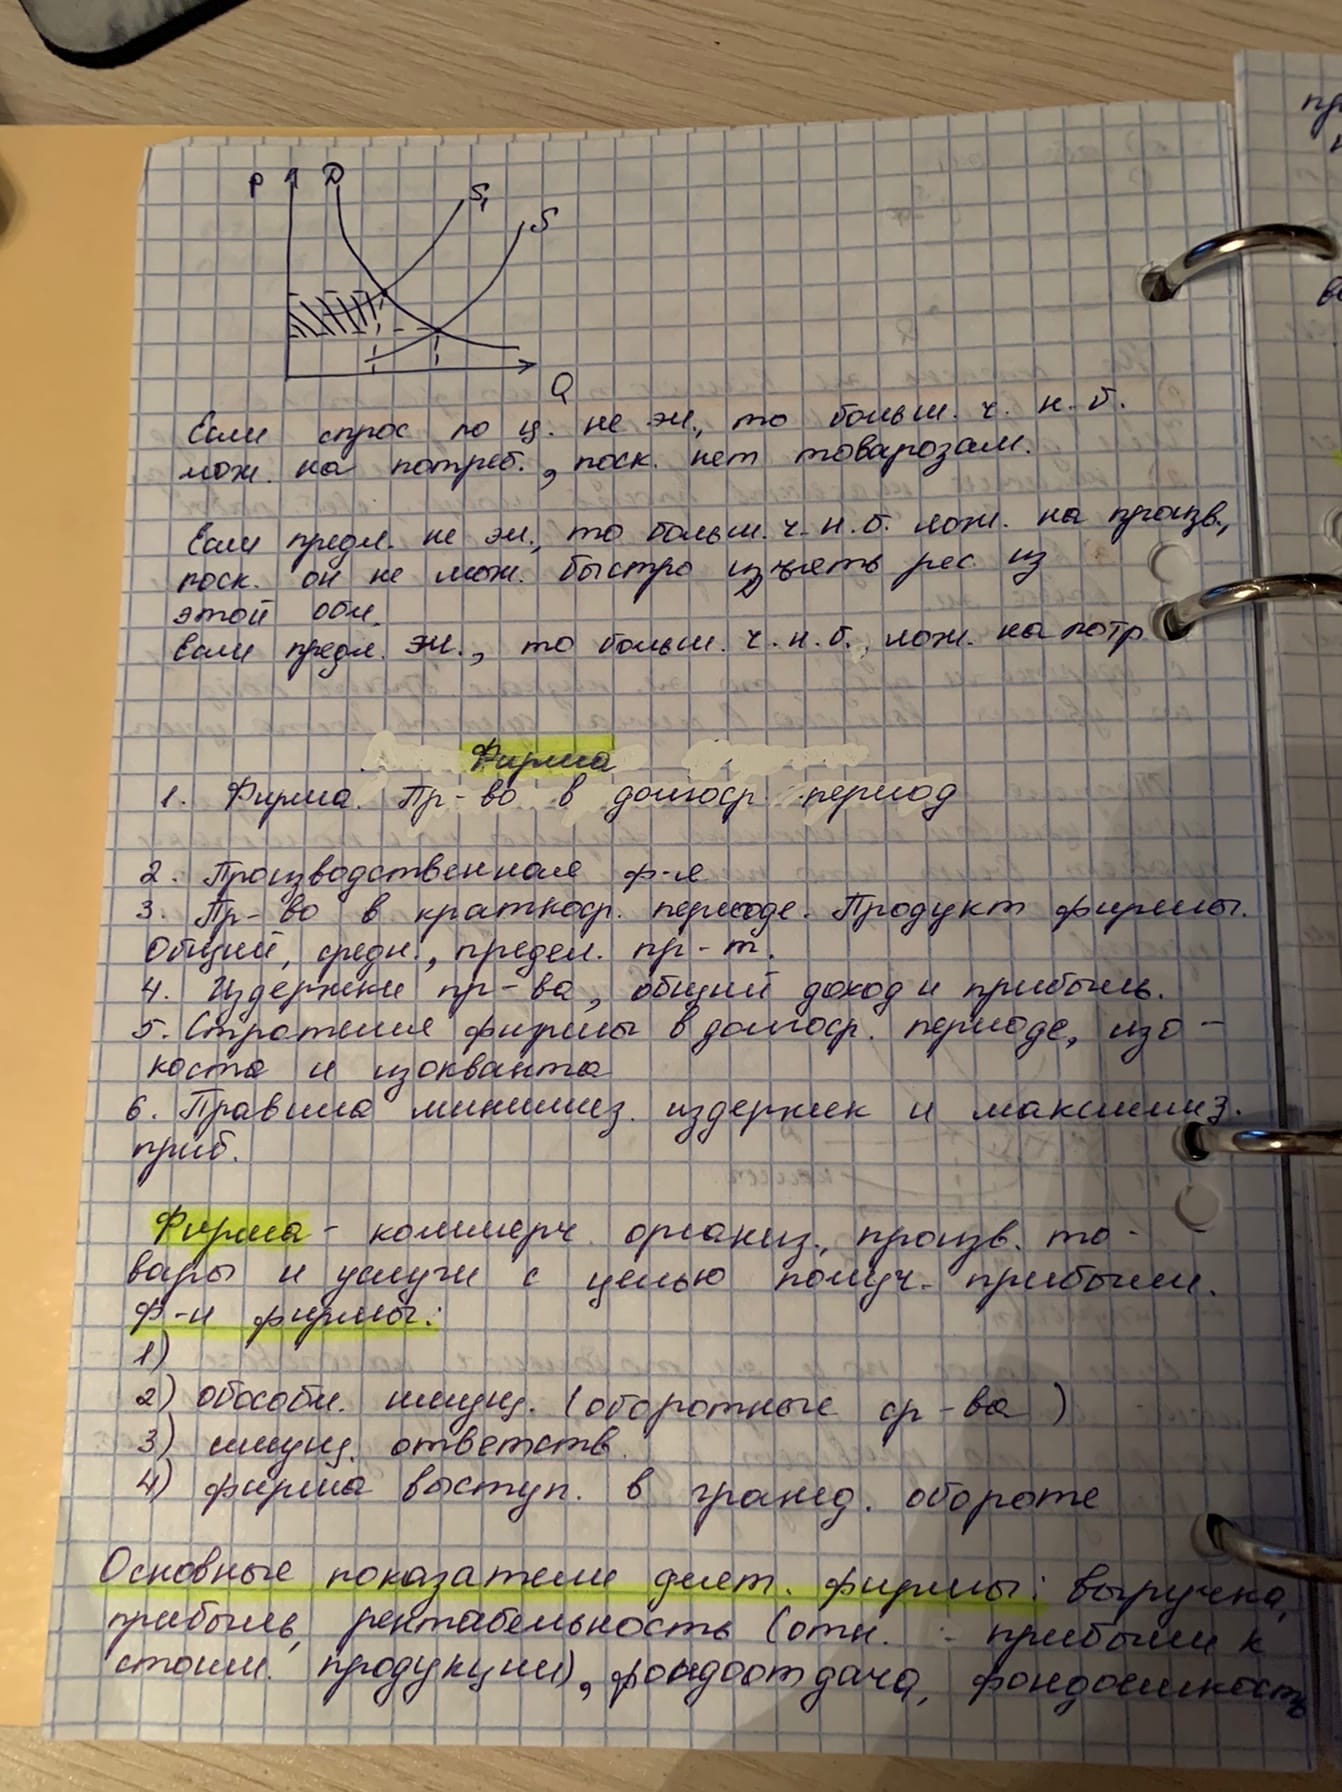 P D S₁ S
Q
Если спрос по ц. не эл., то больш. ч. н.б.
лож. на потреб., поск. нет товарозам.
Если предл. не эл., то больш. ч. н.б. лож. на произв.,
поск. он не мож. быстро изъять рес. из
этой обл.
Если предл. эл., то больш. ч. н.б., лож. на потр
Фирма
1. Фирма. Пр-во в долгоср. период
2. Производственная ф-я
3. Пр-во в краткоср. периоде. Продукт фирмы.
Общий, средн., предел. пр-т.
4. Издержки пр-ва, общий доход и прибыль.
5. Стратегия фирмы в долгоср. периоде, изо-
коста и изокванта
6. Правила минимиз. издержек и максимиз.
приб.
Фирма - коммерч. организ., произв. то-
вары и услуги с целью получ. прибыли.
Ф-и фирмы:
1)
2) обособл. имущ. (оборотные ср-ва)
3) имущ. ответств.
4) фирма выступ. в гражд. обороте
Основные показатели деят. фирмы: выручка,
прибыль, рентабельность (отн. прибыли к
стоим. продукции), фондоотдача, фондоёмкость